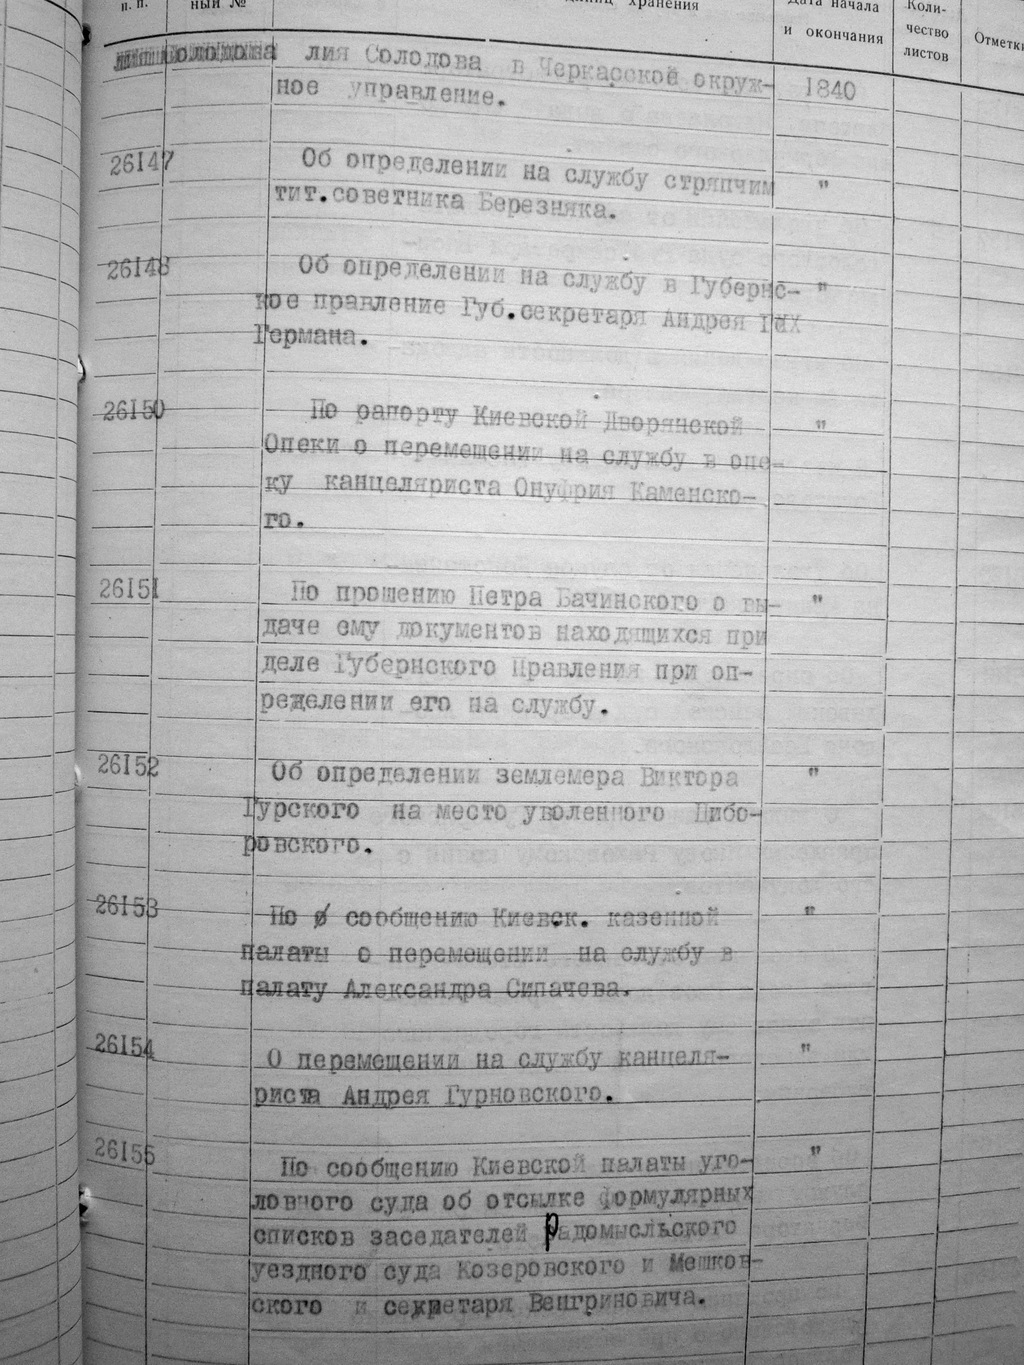 п. п.
ный №
единиц хранения
Дата начала
и окончания
Коли-
чество
листов
Отметки
лия Солодова в Черкасской окруж-
ное управление. 1840
26147 Об определении на службу стряпчим "
тит.советника Березняка.
26148 Об определении на службу в Губернс- "
кое правление Губ.секретаря Андрея
Германа.
26150 По рапорту Киевской Дворянской "
Опеки о перемещении на службу в опе-
ку канцеляриста Онуфрия Каменско-
го.
26151 По прошению Петра Бачинского о вы- "
даче ему документов находящихся при
деле Губернского Правления при оп-
ределении его на службу.
26152 Об определении землемера Виктора "
Гурского на место уволенного Цибо-
ровского.
26153 По сообщению Киевск. казенной "
палаты о перемещении на службу в
палату Александра Сипачева.
26154 О перемещении на службу канцеля- "
риста Андрея Гурновского.
26155 По сообщению Киевской палаты уго- "
ловного суда об отсылке формулярных
списков заседателей Радомысльского
уездного суда Козеровского и Мешков-
ского и секретаря Венгриновича.